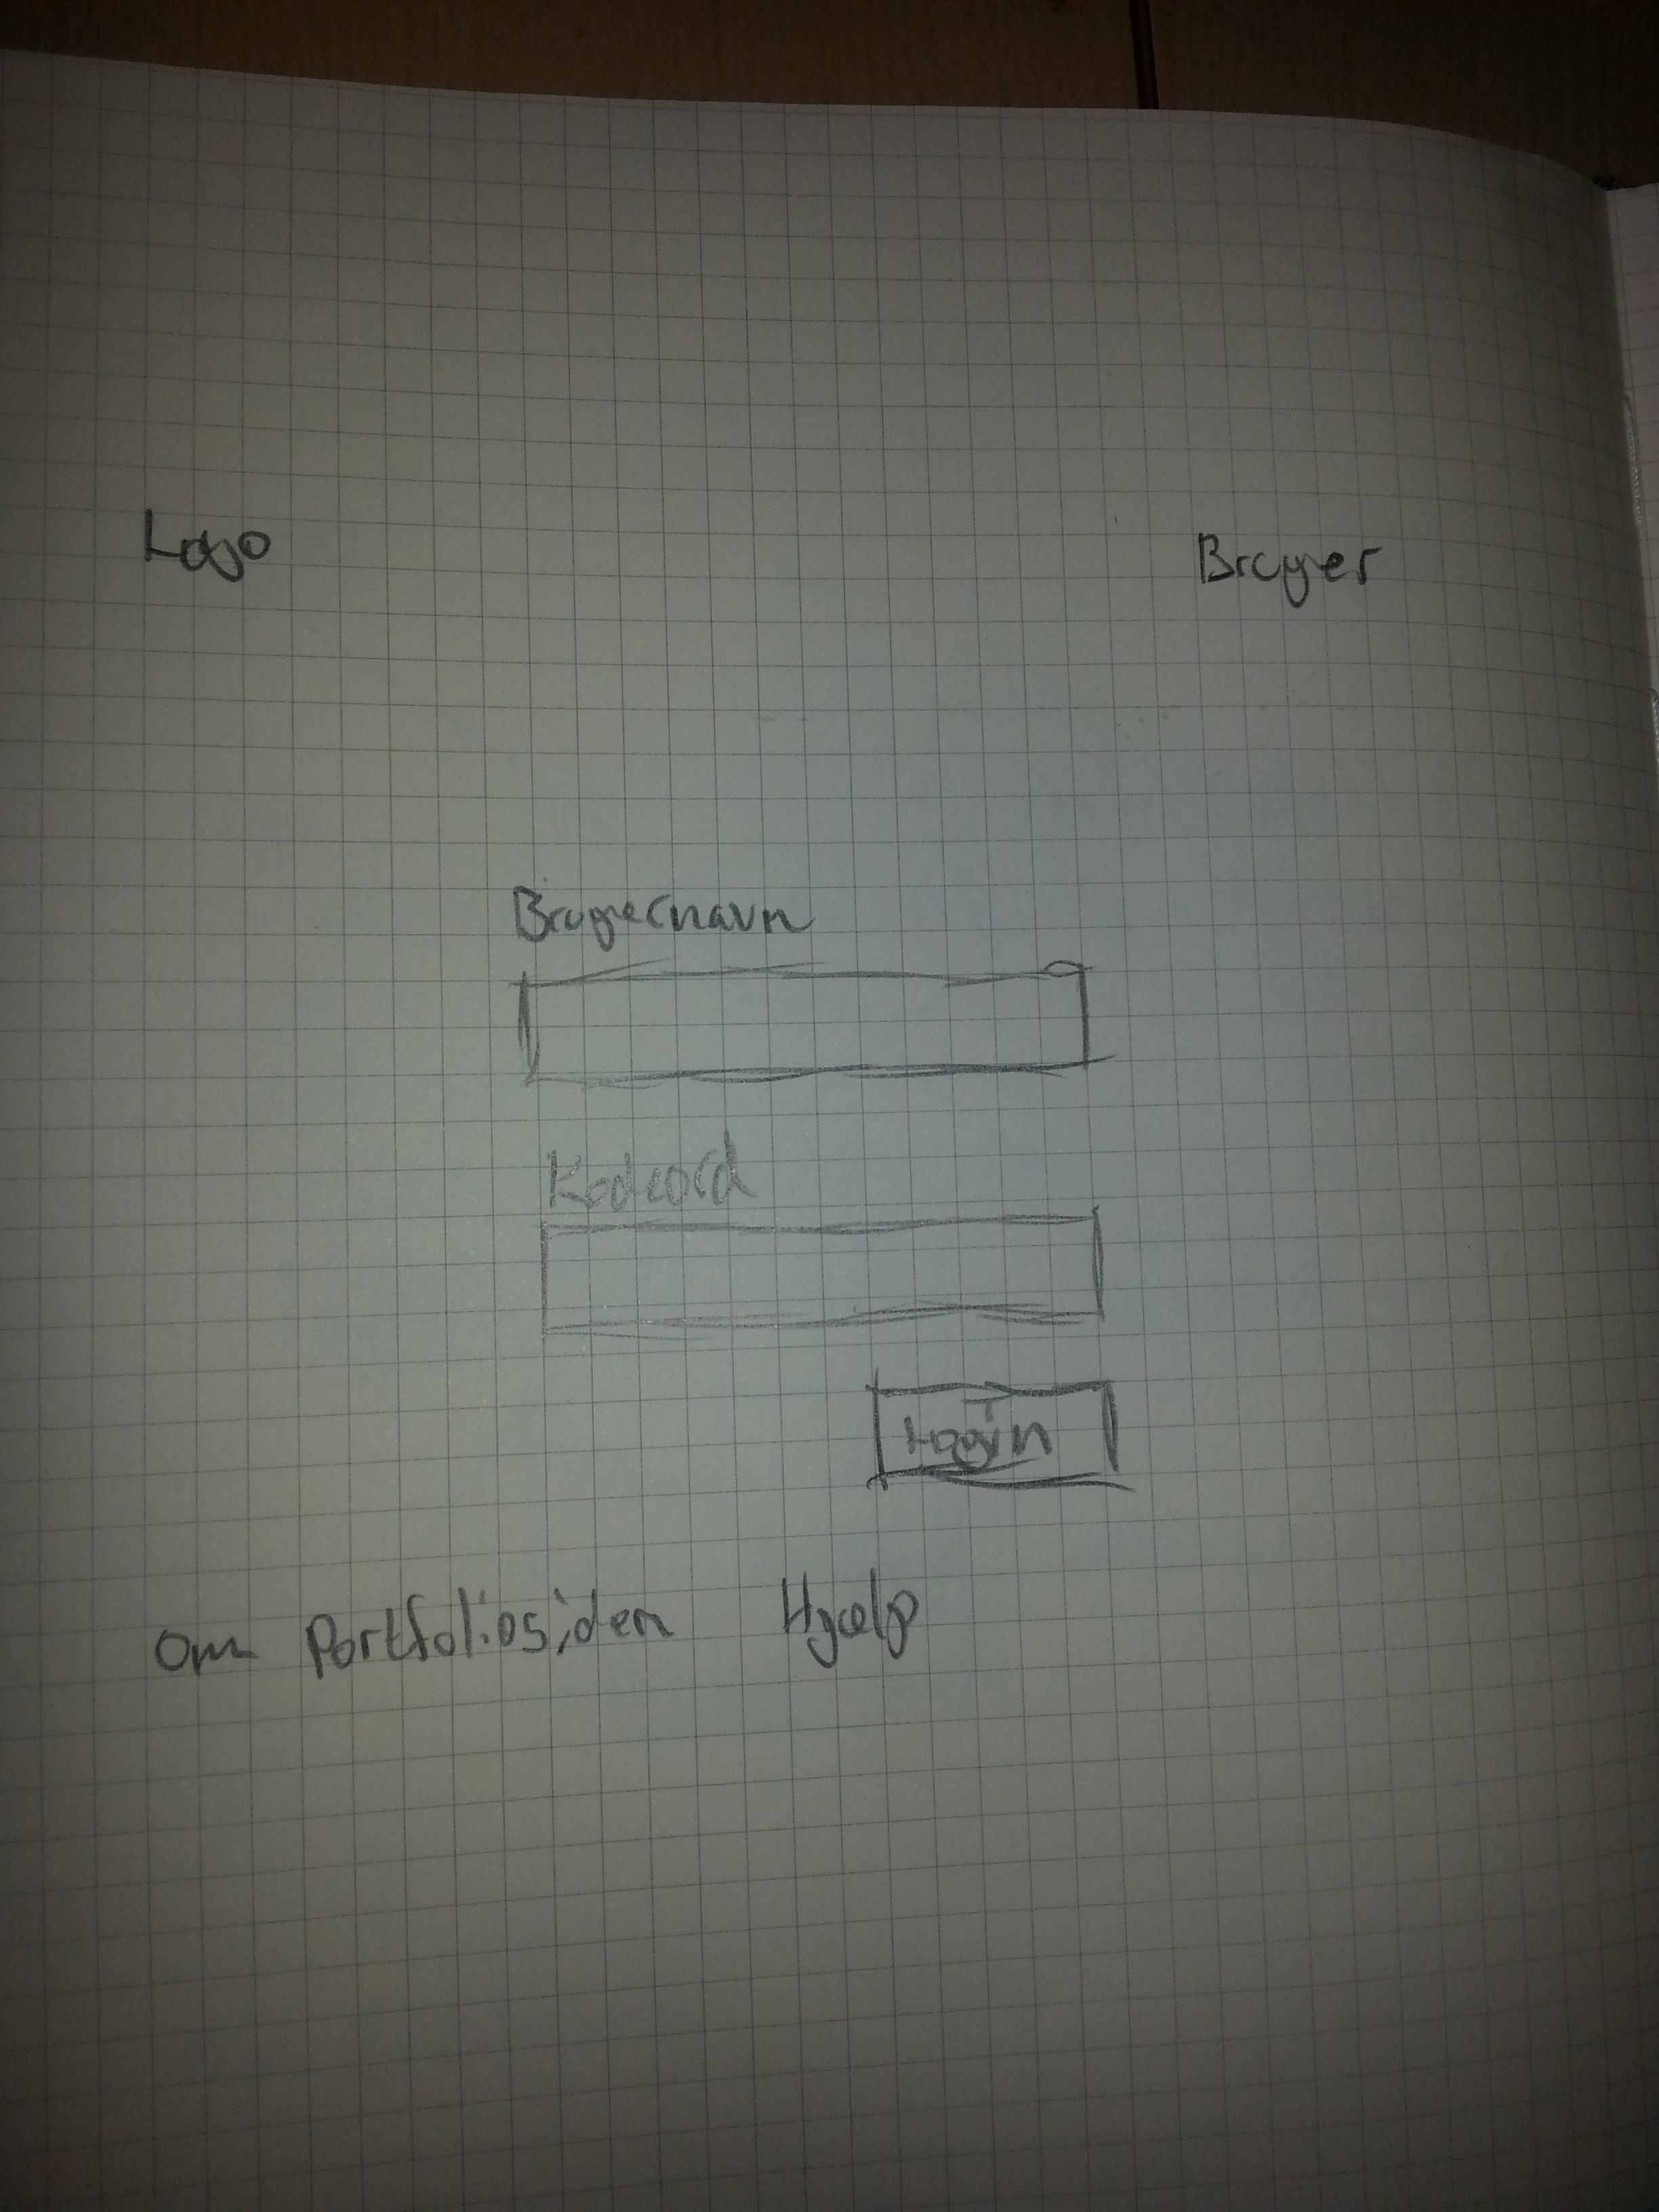 Logo Bruger
Brugernavn
Kodeord
Login
Om Portfoliosiden Hjælp